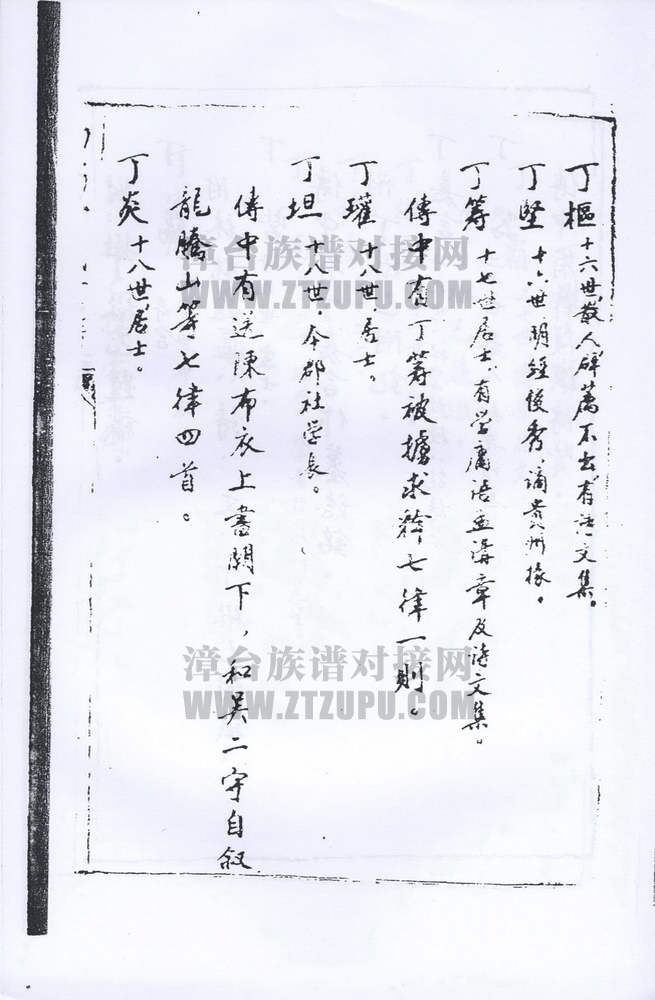 丁樞 十六世，散人辟薦不出，有詩文集。
丁堅 十六世，明經後秀，謫貴州掾。
丁籌 十七世居士，有学庸語孟講章及詩文集。
傳中有丁籌被擄求釋七律一則。
丁瓘 十八世，居士。
丁坦 十八世，本郡社学長。
傳中有送陳布衣上書闕下，和吴二守自叙
龍騰山等七律四首。
丁炎 十八世居士。
漳台族谱对接网
WWW.ZTZUPU.COM
漳台族谱对接网
WWW.ZTZUPU.COM